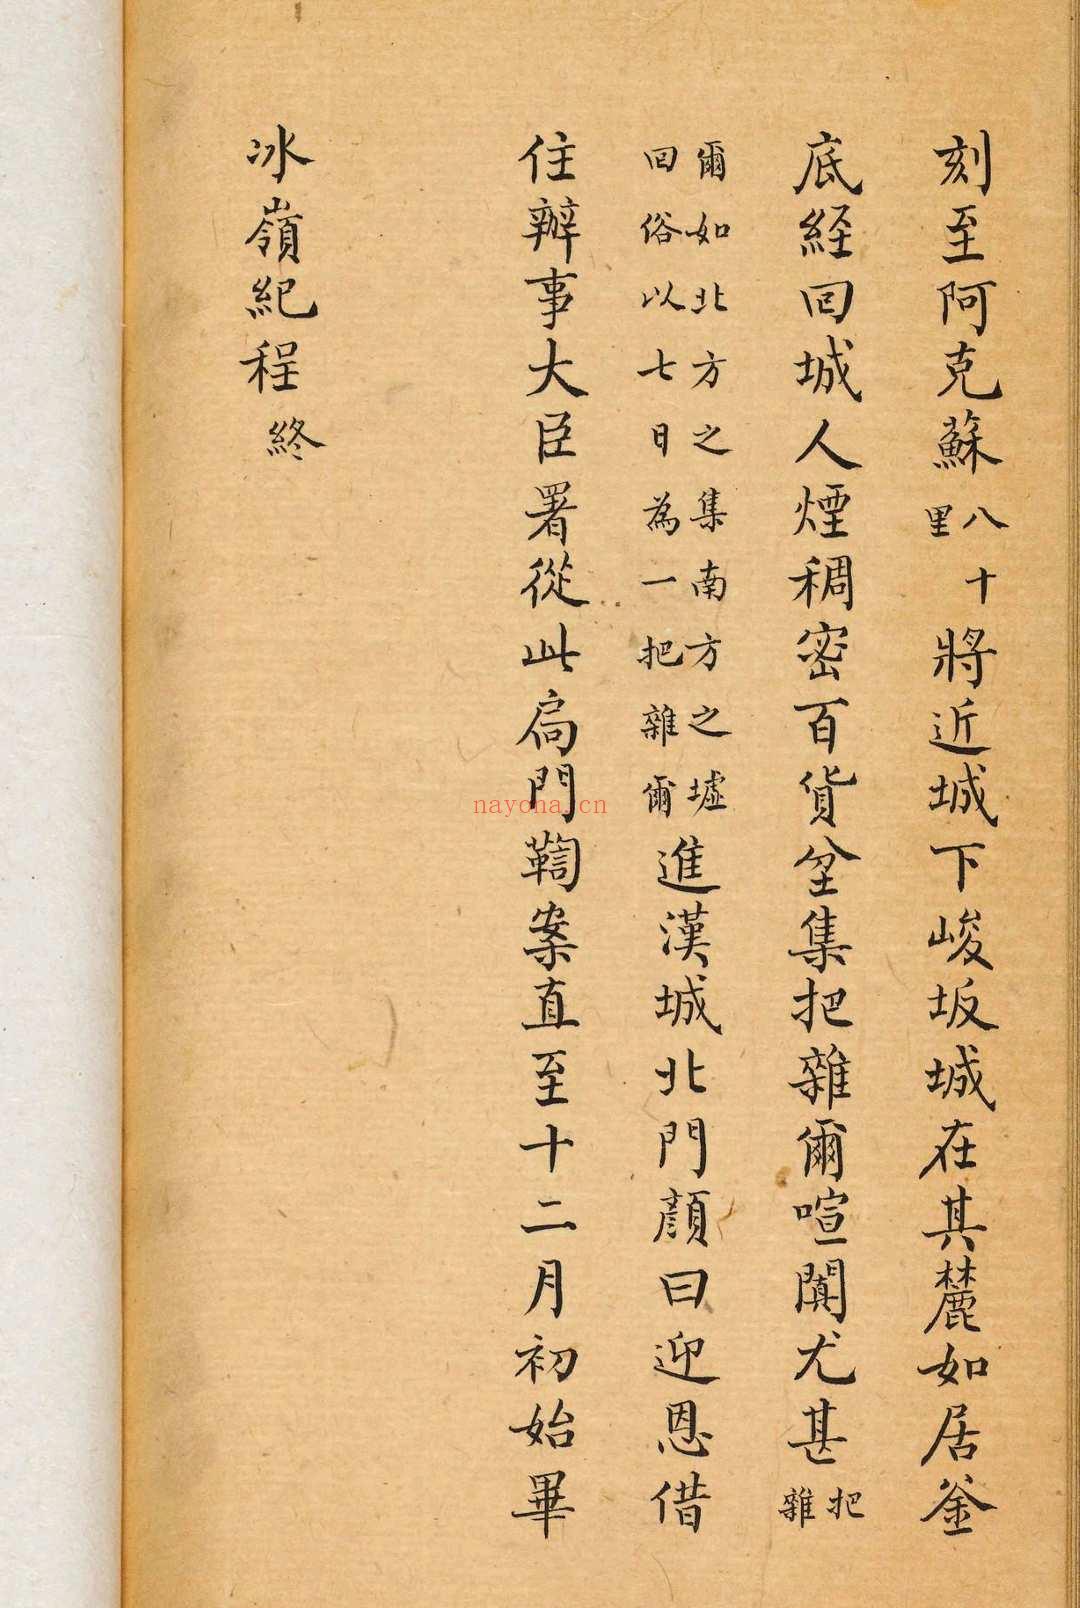 刻至阿克蘇八十里將近城下峻坂城在其麓如居釜
底經回城人煙稠密百貨坌集把雜爾喧闐尤甚把雜
爾如北方之集南方之墟回俗以七日為一把雜爾進漢城北門顏曰迎恩借
住辦事大臣署從此扃門鞫案直至十二月初始畢
冰嶺紀程終
nayona.cn